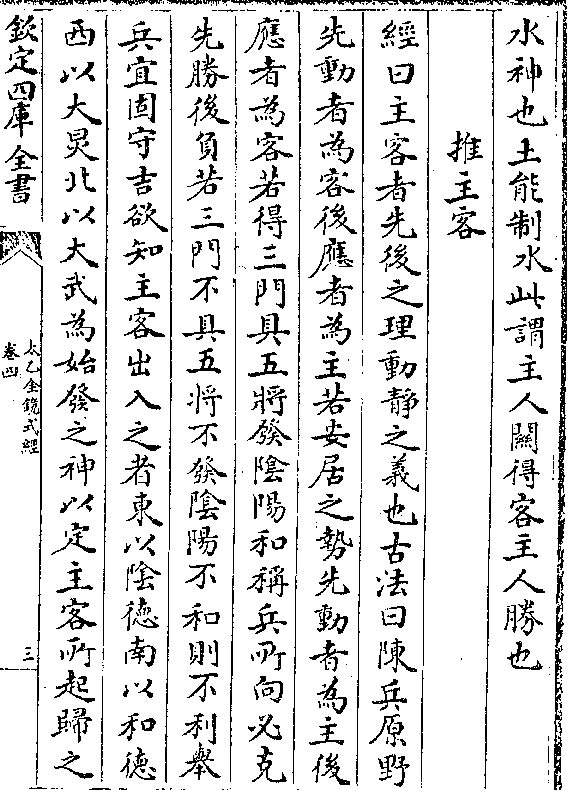 水神也土能制水此謂主人關得客主人勝也
推主客
經曰主客者先後之理動靜之義也古法曰陳兵原野
先動者為客後應者為主若安居之勢先動者為主後
應者為客若得三門具五將發陰陽和稱兵所向必克
先勝後負若三門不具五將不發陰陽不和則不利舉
兵宜固守吉欲知主客出入之者東以陰德南以和德
西以大炅北以大武為始發之神以定主客所起歸之
欽定四庫全書
太乙金鏡式經
卷四
三